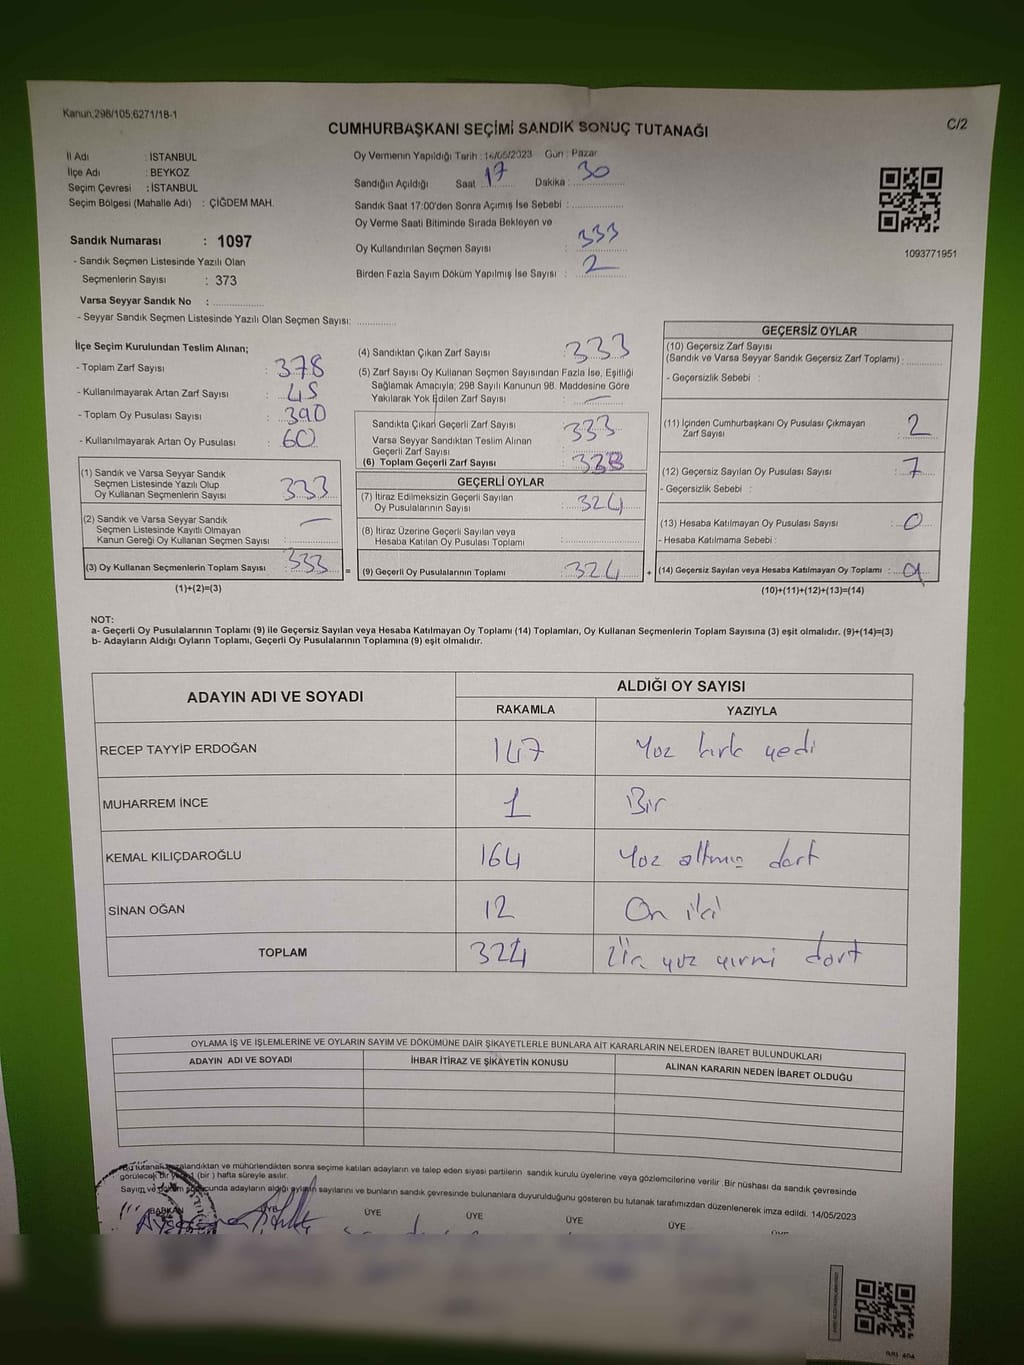 Kanun:298/105;6271/18-1
CUMHURBAŞKANI SEÇİMİ SANDIK SONUÇ TUTANAĞI
C/2
İl Adı : İSTANBUL
İlçe Adı : BEYKOZ
Seçim Çevresi : İSTANBUL
Seçim Bölgesi (Mahalle Adı) : ÇİĞDEM MAH.
Sandık Numarası : 1097
- Sandık Seçmen Listesinde Yazılı Olan
Seçmenlerin Sayısı : 373
Varsa Seyyar Sandık No :
- Seyyar Sandık Seçmen Listesinde Yazılı Olan Seçmen Sayısı:
Oy Vermenin Yapıldığı Tarih : 14/05/2023 Gün : Pazar
Sandığın Açıldığı Saat : 17 Dakika : 30
Sandık Saat 17:00'den Sonra Açımış İse Sebebi :
Oy Verme Saati Bitiminde Sırada Bekleyen ve
Oy Kullandırılan Seçmen Sayısı : 333
Birden Fazla Sayım Döküm Yapılmış İse Sayısı : 2
1093771951
İlçe Seçim Kurulundan Teslim Alınan;
- Toplam Zarf Sayısı : 378
- Kullanılmayarak Artan Zarf Sayısı : 45
- Toplam Oy Pusulası Sayısı : 390
- Kullanılmayarak Artan Oy Pusulası : 60
(1) Sandık ve Varsa Seyyar Sandık
Seçmen Listesinde Yazılı Olup
Oy Kullanan Seçmenlerin Sayısı : 333
(2) Sandık ve Varsa Seyyar Sandık
Seçmen Listesinde Kayıtlı Olmayan
Kanun Gereği Oy Kullanan Seçmen Sayısı : —
(3) Oy Kullanan Seçmenlerin Toplam Sayısı : 333 =
(1)+(2)=(3)
(4) Sandıktan Çıkan Zarf Sayısı : 333
(5) Zarf Sayısı Oy Kullanan Seçmen Sayısından Fazla İse, Eşitliği
Sağlamak Amacıyla; 298 Sayılı Kanunun 98. Maddesine Göre
Yakılarak Yok Edilen Zarf Sayısı : —
Sandıkta Çıkan Geçerli Zarf Sayısı : 333
Varsa Seyyar Sandıktan Teslim Alınan
Geçerli Zarf Sayısı :
(6) Toplam Geçerli Zarf Sayısı : 333
GEÇERLİ OYLAR
(7) İtiraz Edilmeksizin Geçerli Sayılan
Oy Pusulalarının Sayısı : 324
(8) İtiraz Üzerine Geçerli Sayılan veya
Hesaba Katılan Oy Pusulası Toplamı :
(9) Geçerli Oy Pusulalarının Toplamı : 324 +
GEÇERSİZ OYLAR
(10) Geçersiz Zarf Sayısı
(Sandık ve Varsa Seyyar Sandık Geçersiz Zarf Toplamı) :
- Geçersizlik Sebebi :
(11) İçinden Cumhurbaşkanı Oy Pusulası Çıkmayan
Zarf Sayısı : 2
(12) Geçersiz Sayılan Oy Pusulası Sayısı : 7
- Geçersizlik Sebebi :
(13) Hesaba Katılmayan Oy Pusulası Sayısı : 0
- Hesaba Katılmama Sebebi :
(14) Geçersiz Sayılan veya Hesaba Katılmayan Oy Toplamı : 9
(10)+(11)+(12)+(13)=(14)
NOT:
a- Geçerli Oy Pusulalarının Toplamı (9) ile Geçersiz Sayılan veya Hesaba Katılmayan Oy Toplamı (14) Toplamları, Oy Kullanan Seçmenlerin Toplam Sayısına (3) eşit olmalıdır. (9)+(14)=(3)
b- Adayların Aldığı Oyların Toplamı, Geçerli Oy Pusulalarının Toplamına (9) eşit olmalıdır.
ADAYIN ADI VE SOYADI
ALDIĞI OY SAYISI
RAKAMLA YAZIYLA
RECEP TAYYİP ERDOĞAN 147 Yüz kırk yedi
MUHARREM İNCE 1 Bir
KEMAL KILIÇDAROĞLU 164 Yüz altmış dört
SİNAN OĞAN 12 On iki
TOPLAM 324 Üç yüz yirmi dört
OYLAMA İŞ VE İŞLEMLERİNE VE OYLARIN SAYIM VE DÖKÜMÜNE DAİR ŞİKAYETLERLE BUNLARA AİT KARARLARIN NELERDEN İBARET BULUNDUKLARI
ADAYIN ADI VE SOYADI
İHBAR İTİRAZ VE ŞİKAYETİN KONUSU
ALINAN KARARIN NEDEN İBARET OLDUĞU
Bu tutanak imzalandıktan ve mühürlendikten sonra seçime katılan adayların ve talep eden siyasi partilerin sandık kurulu üyelerine veya gözlemcilerine verilir. Bir nüshası da sandık çevresinde
görülecek bir yere 1 (bir ) hafta süreyle asılır.
Sayım ve döküm sonucunda adayların aldığı oyların sayılarını ve bunların sandık çevresinde bulunanlara duyurulduğunu gösteren bu tutanak tarafımızdan düzenlenerek imza edildi. 14/05/2023
BAŞKAN ÜYE ÜYE ÜYE ÜYE